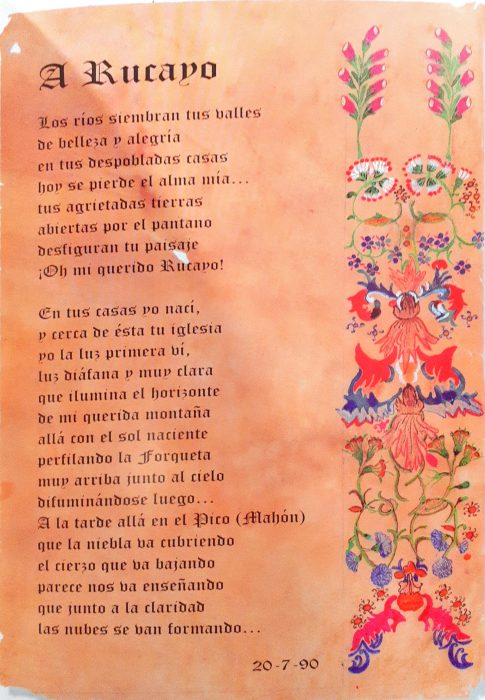 A Rucayo
Los ríos siembran tus valles
de belleza y alegría
en tus despobladas casas
hoy se pierde el alma mía...
tus agrietadas tierras
abiertas por el pantano
desfiguran tu paisaje
¡Oh mi querido Rucayo!
En tus casas yo nací,
y cerca de ésta tu iglesia
yo la luz primera ví,
luz diáfana y muy clara
que ilumina el horizonte
de mi querida montaña
allá con el sol naciente
perfilando la Forqueta
muy arriba junto al cielo
difuminándose luego...
A la tarde allá en el Pico (Mahón)
que la niebla va cubriendo
el cierzo que va bajando
parece nos va enseñando
que junto a la claridad
las nubes se van formando...
20-7-90